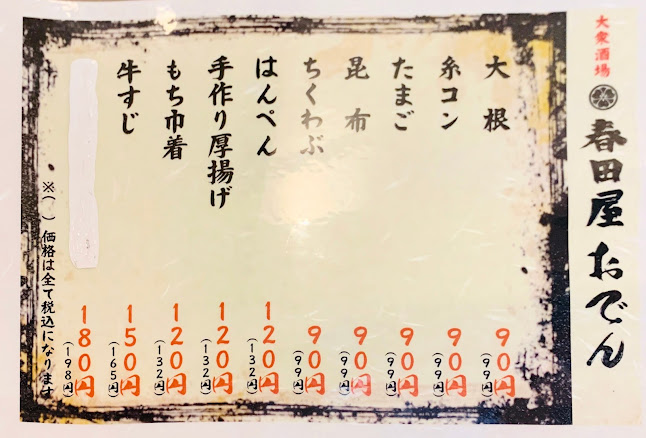 大衆酒場
春田屋 おでん
大根 90円(99円)
糸コン 90円(99円)
たまご 90円(99円)
昆布 90円(99円)
ちくわぶ 90円(99円)
はんぺん 120円(132円)
手作り厚揚げ 120円(132円)
もち巾着 120円(132円)
牛すじ 150円(165円)
180円(198円)
※( )価格は全て税込になります